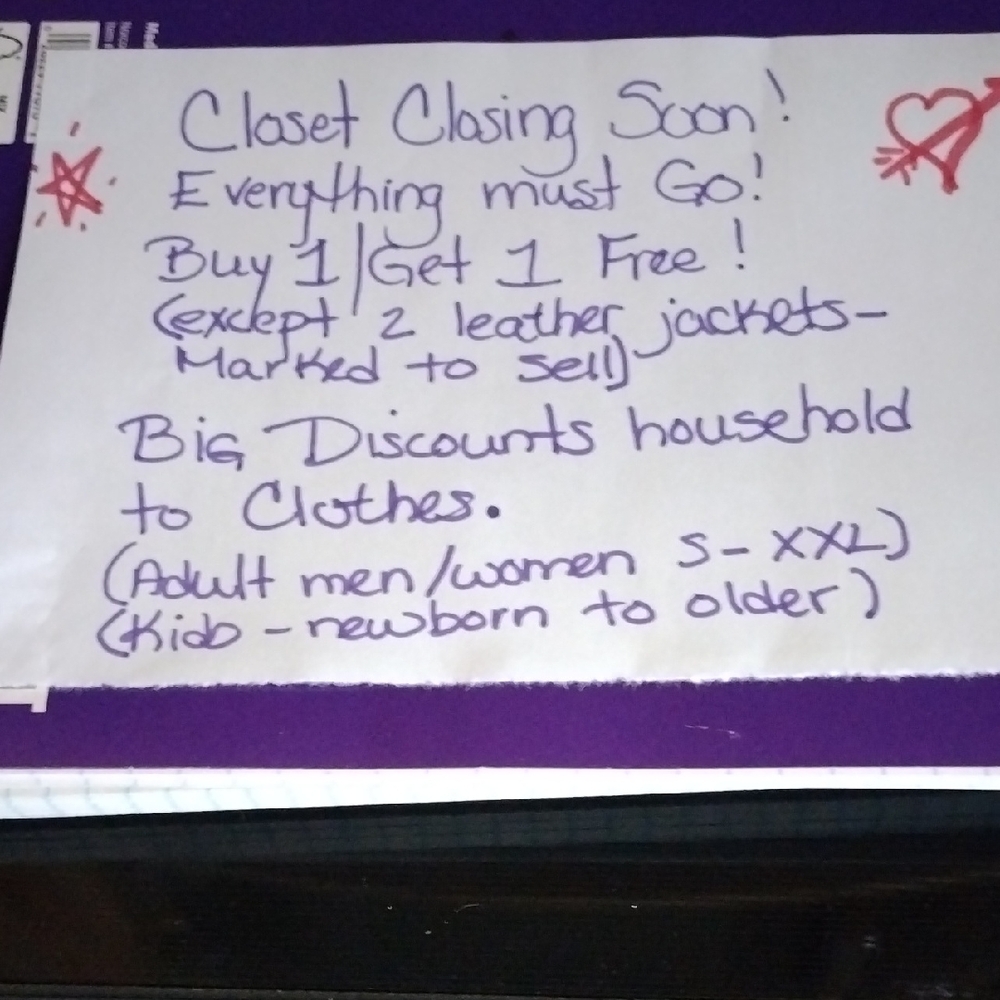 Closet Closing Soon!
Everything must Go!
Buy 1/Get 1 Free!
(except 2 leather jackets-
Marked to sell)
Big Discounts household
to Clothes.
(Adult men/women S-XXL)
(Kids - newborn to older)